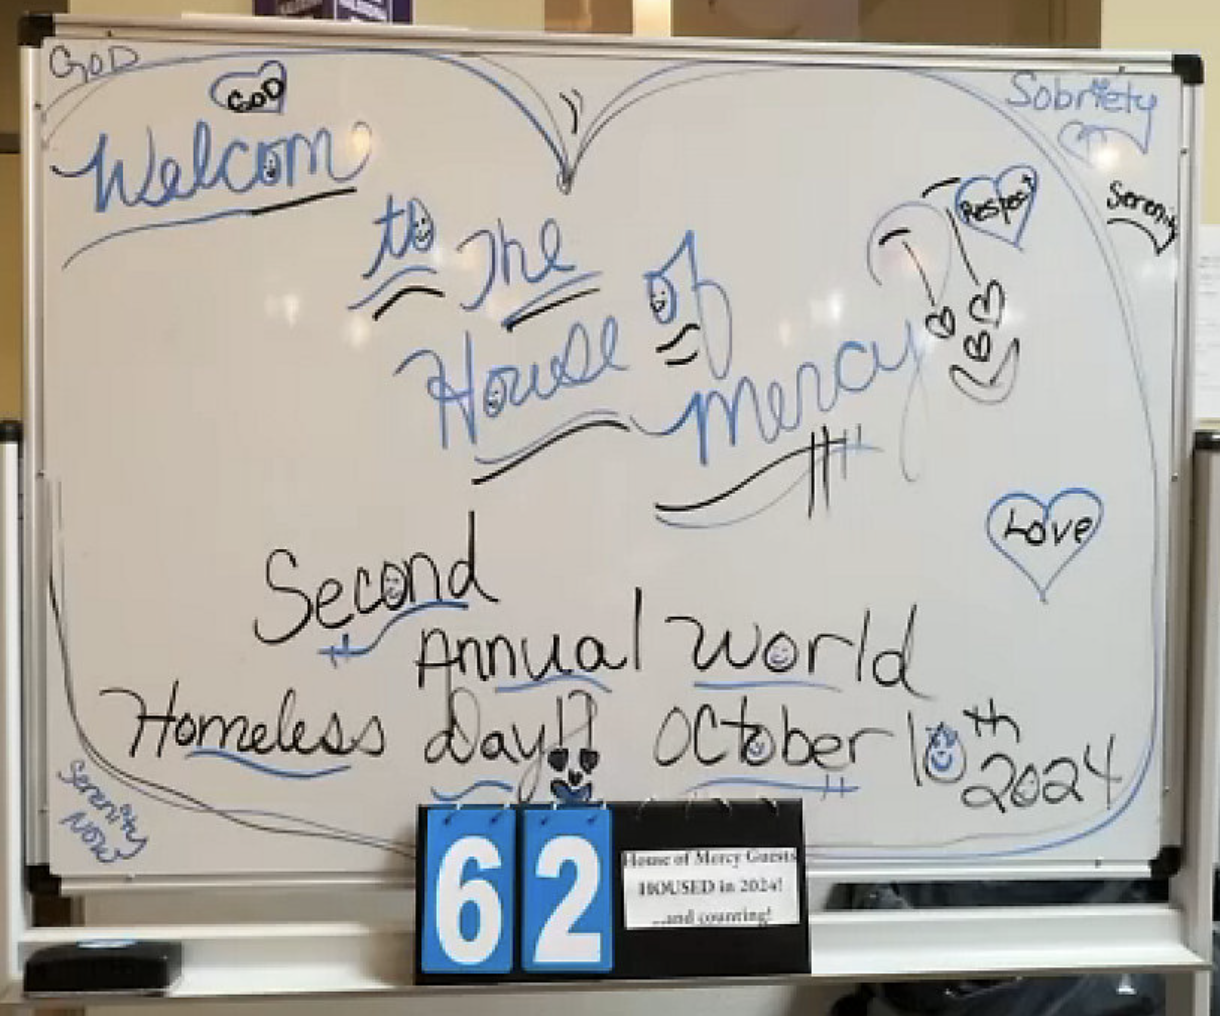 GOD
GOD
Sobriety
Welcom
Respect
Serenity
to The
House of
Mercy
Love
Second
Annual World
Homeless Day!! October 10th 2024
Serenity
Now
62
House of Mercy Guests
HOUSED in 2024!
...and counting!